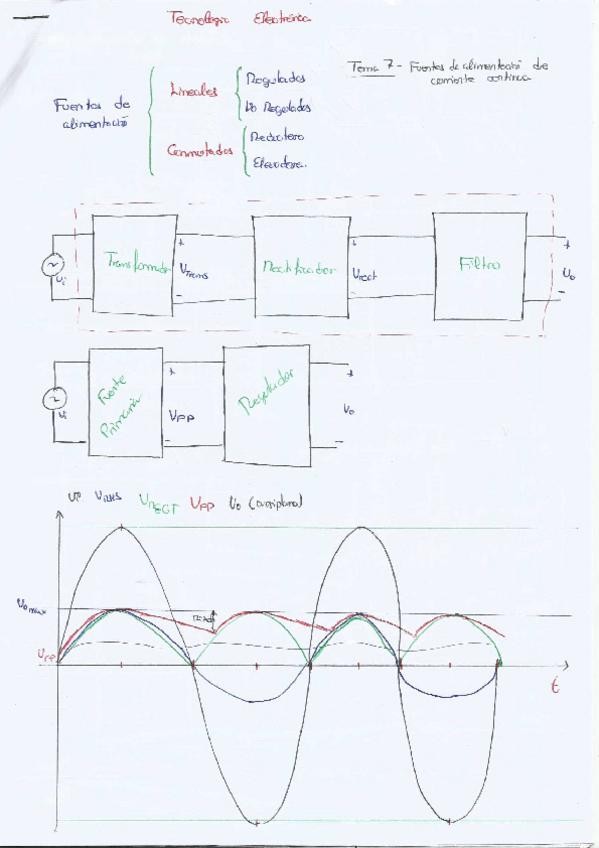 Tecnología Electrónica
Tema 7 - Fuentes de alimentación de
corriente continua
Fuentes de
alimentación
Lineales
Regulados
No Regulados
Conmutados
Reductero
Elevadora.
Transformador
Rectificador
Filtro
~
Vi
+
VTrans
-
+
Vrect
-
+
Vo
-
Fuente
Primaria
Regulador
~
Vi
+
VPP
-
+
Vo
-
VRECT VPP Vo (casi plana)
Vo max
VPP
t